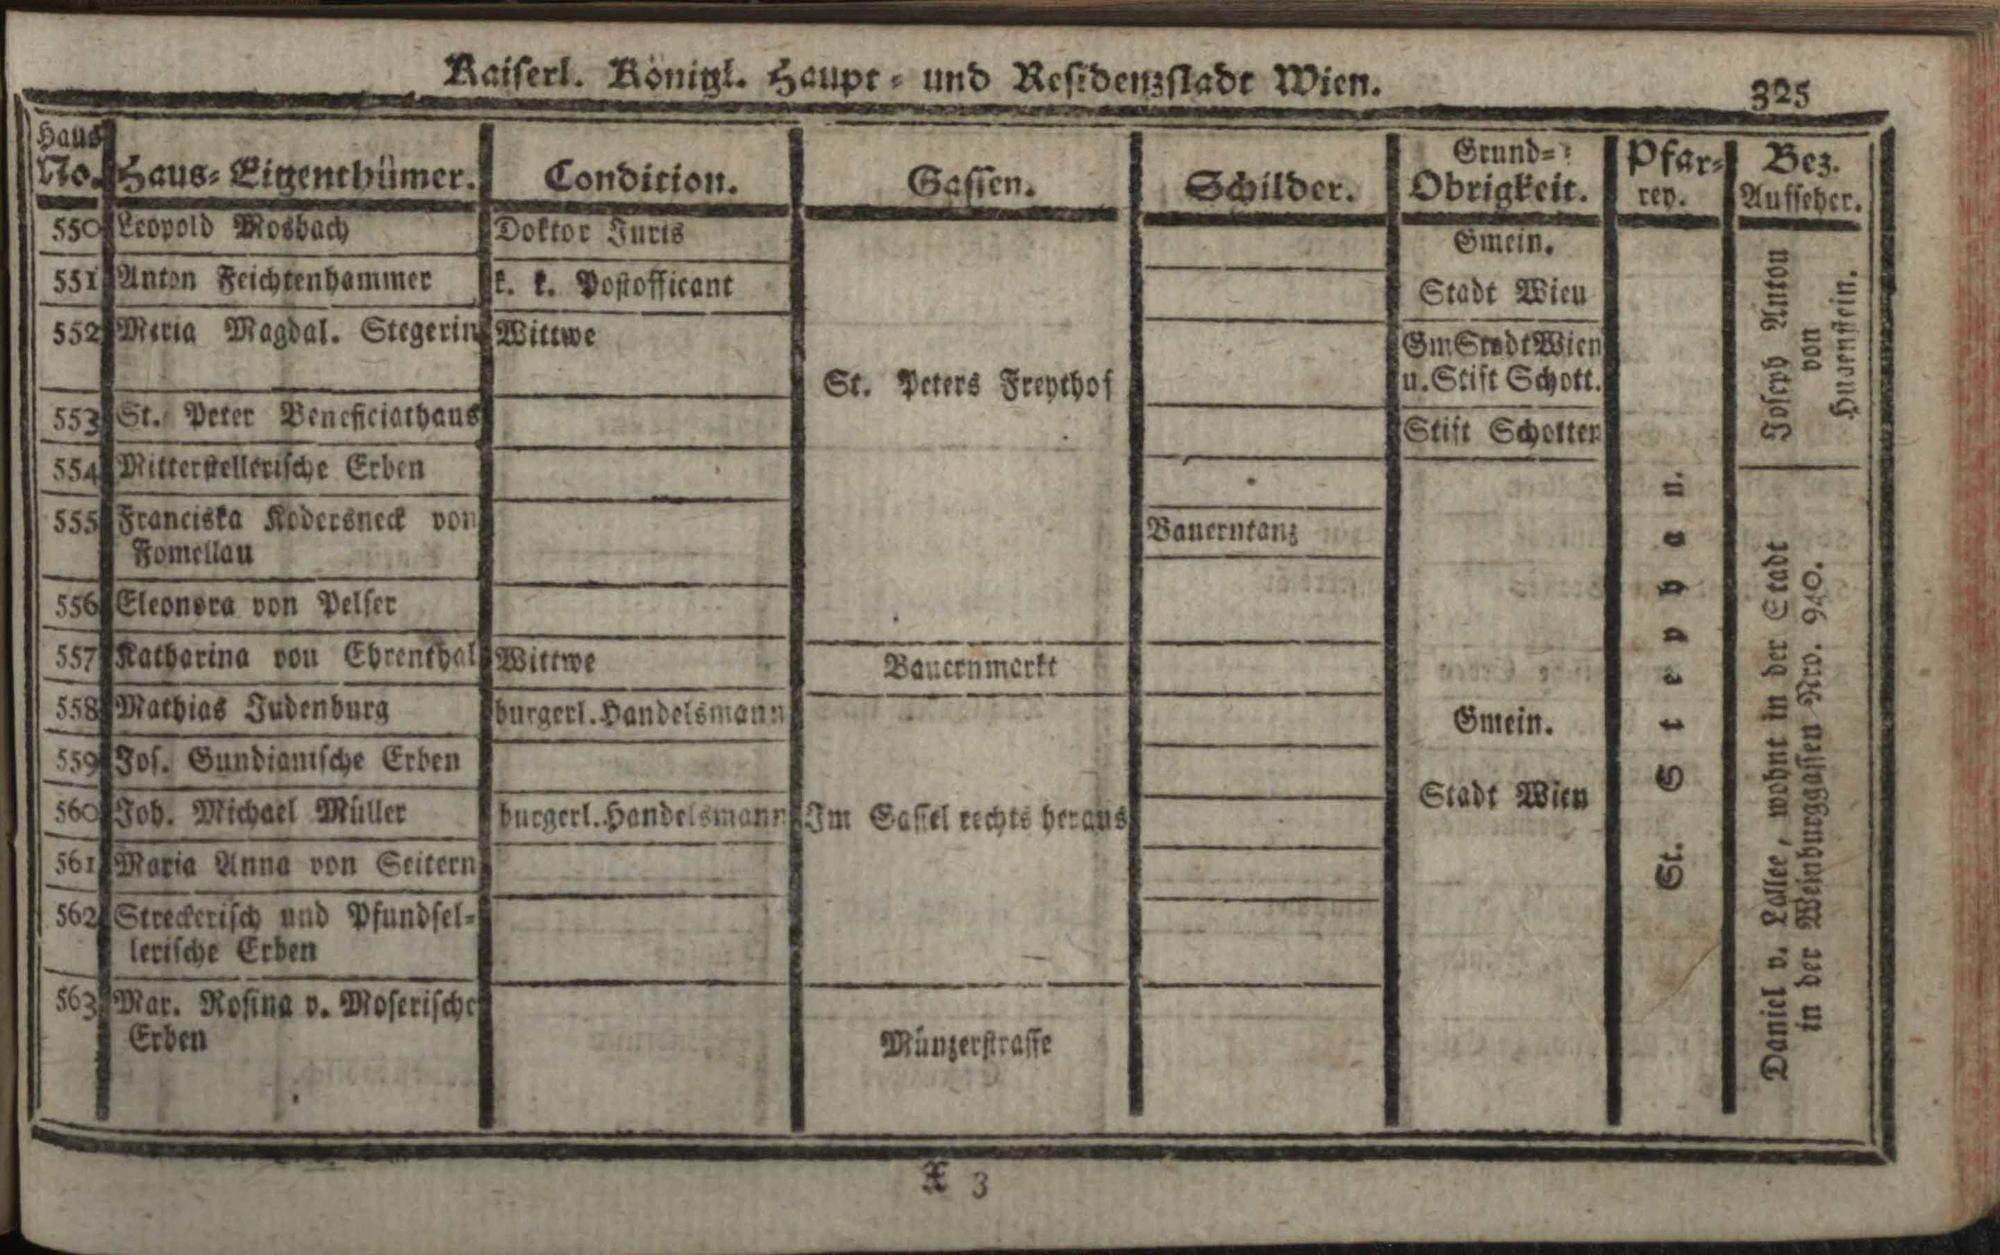 Kaiserl. Königl. Haupt- und Residenzstadt Wien. 325
Haus No. Haus-Eigenthümer. Condition. Gassen. Schilder. Grund-Obrigkeit. Pfarrey. Bez. Aufseher.
550 Leopold Mosbach Doktor Juris Gmein.
551 Anton Feichtenhammer k. k. Postofficant Stadt Wien
552 Maria Magdal. Stegerin Wittwe Gm Stadt Wien
u. Stift Schott.
St. Peters Freythof
553 St. Peter Beneficiathaus Stift Schotten
Joseph Anton
von
554 Mitterstellerische Erben
555 Franciska Kodersneck von Bauerntanz
Fomellau
556 Eleonora von Pelser
557 Katharina von Ehrenthal Wittwe Bauernmarkt
558 Mathias Judenburg burgerl. Handelsmann Gmein.
559 Jos. Gundianische Erben
Stadt Wien
560 Joh. Michael Müller burgerl. Handelsmann Im Gassel rechts heraus
561 Maria Anna von Seitern
562 Streckerisch und Pfundsel-
lerische Erben
563 Mar. Rosina v. Moserische
Erben Münzerstrasse
St. Stephan.
Daniel v. Lallee, wohnt in der Stadt
in der Weinburggassen Nro. 940.
X 3